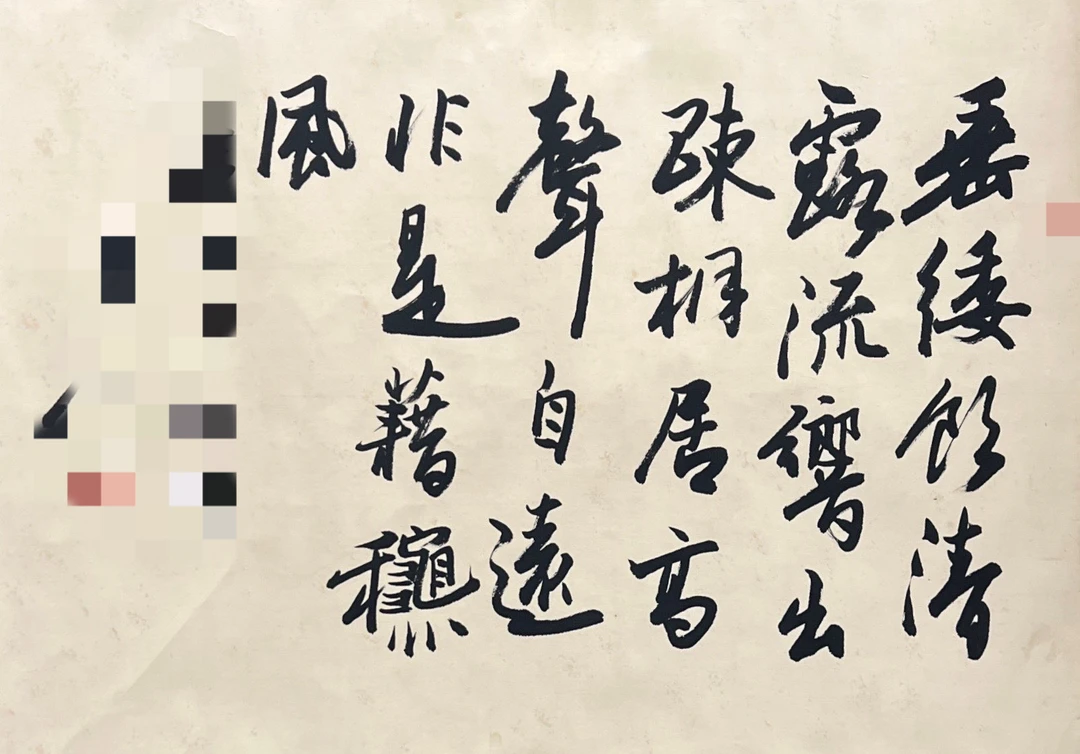 垂緌飲清
露流響出
疎桐居高
聲自遠
非是藉龝
風